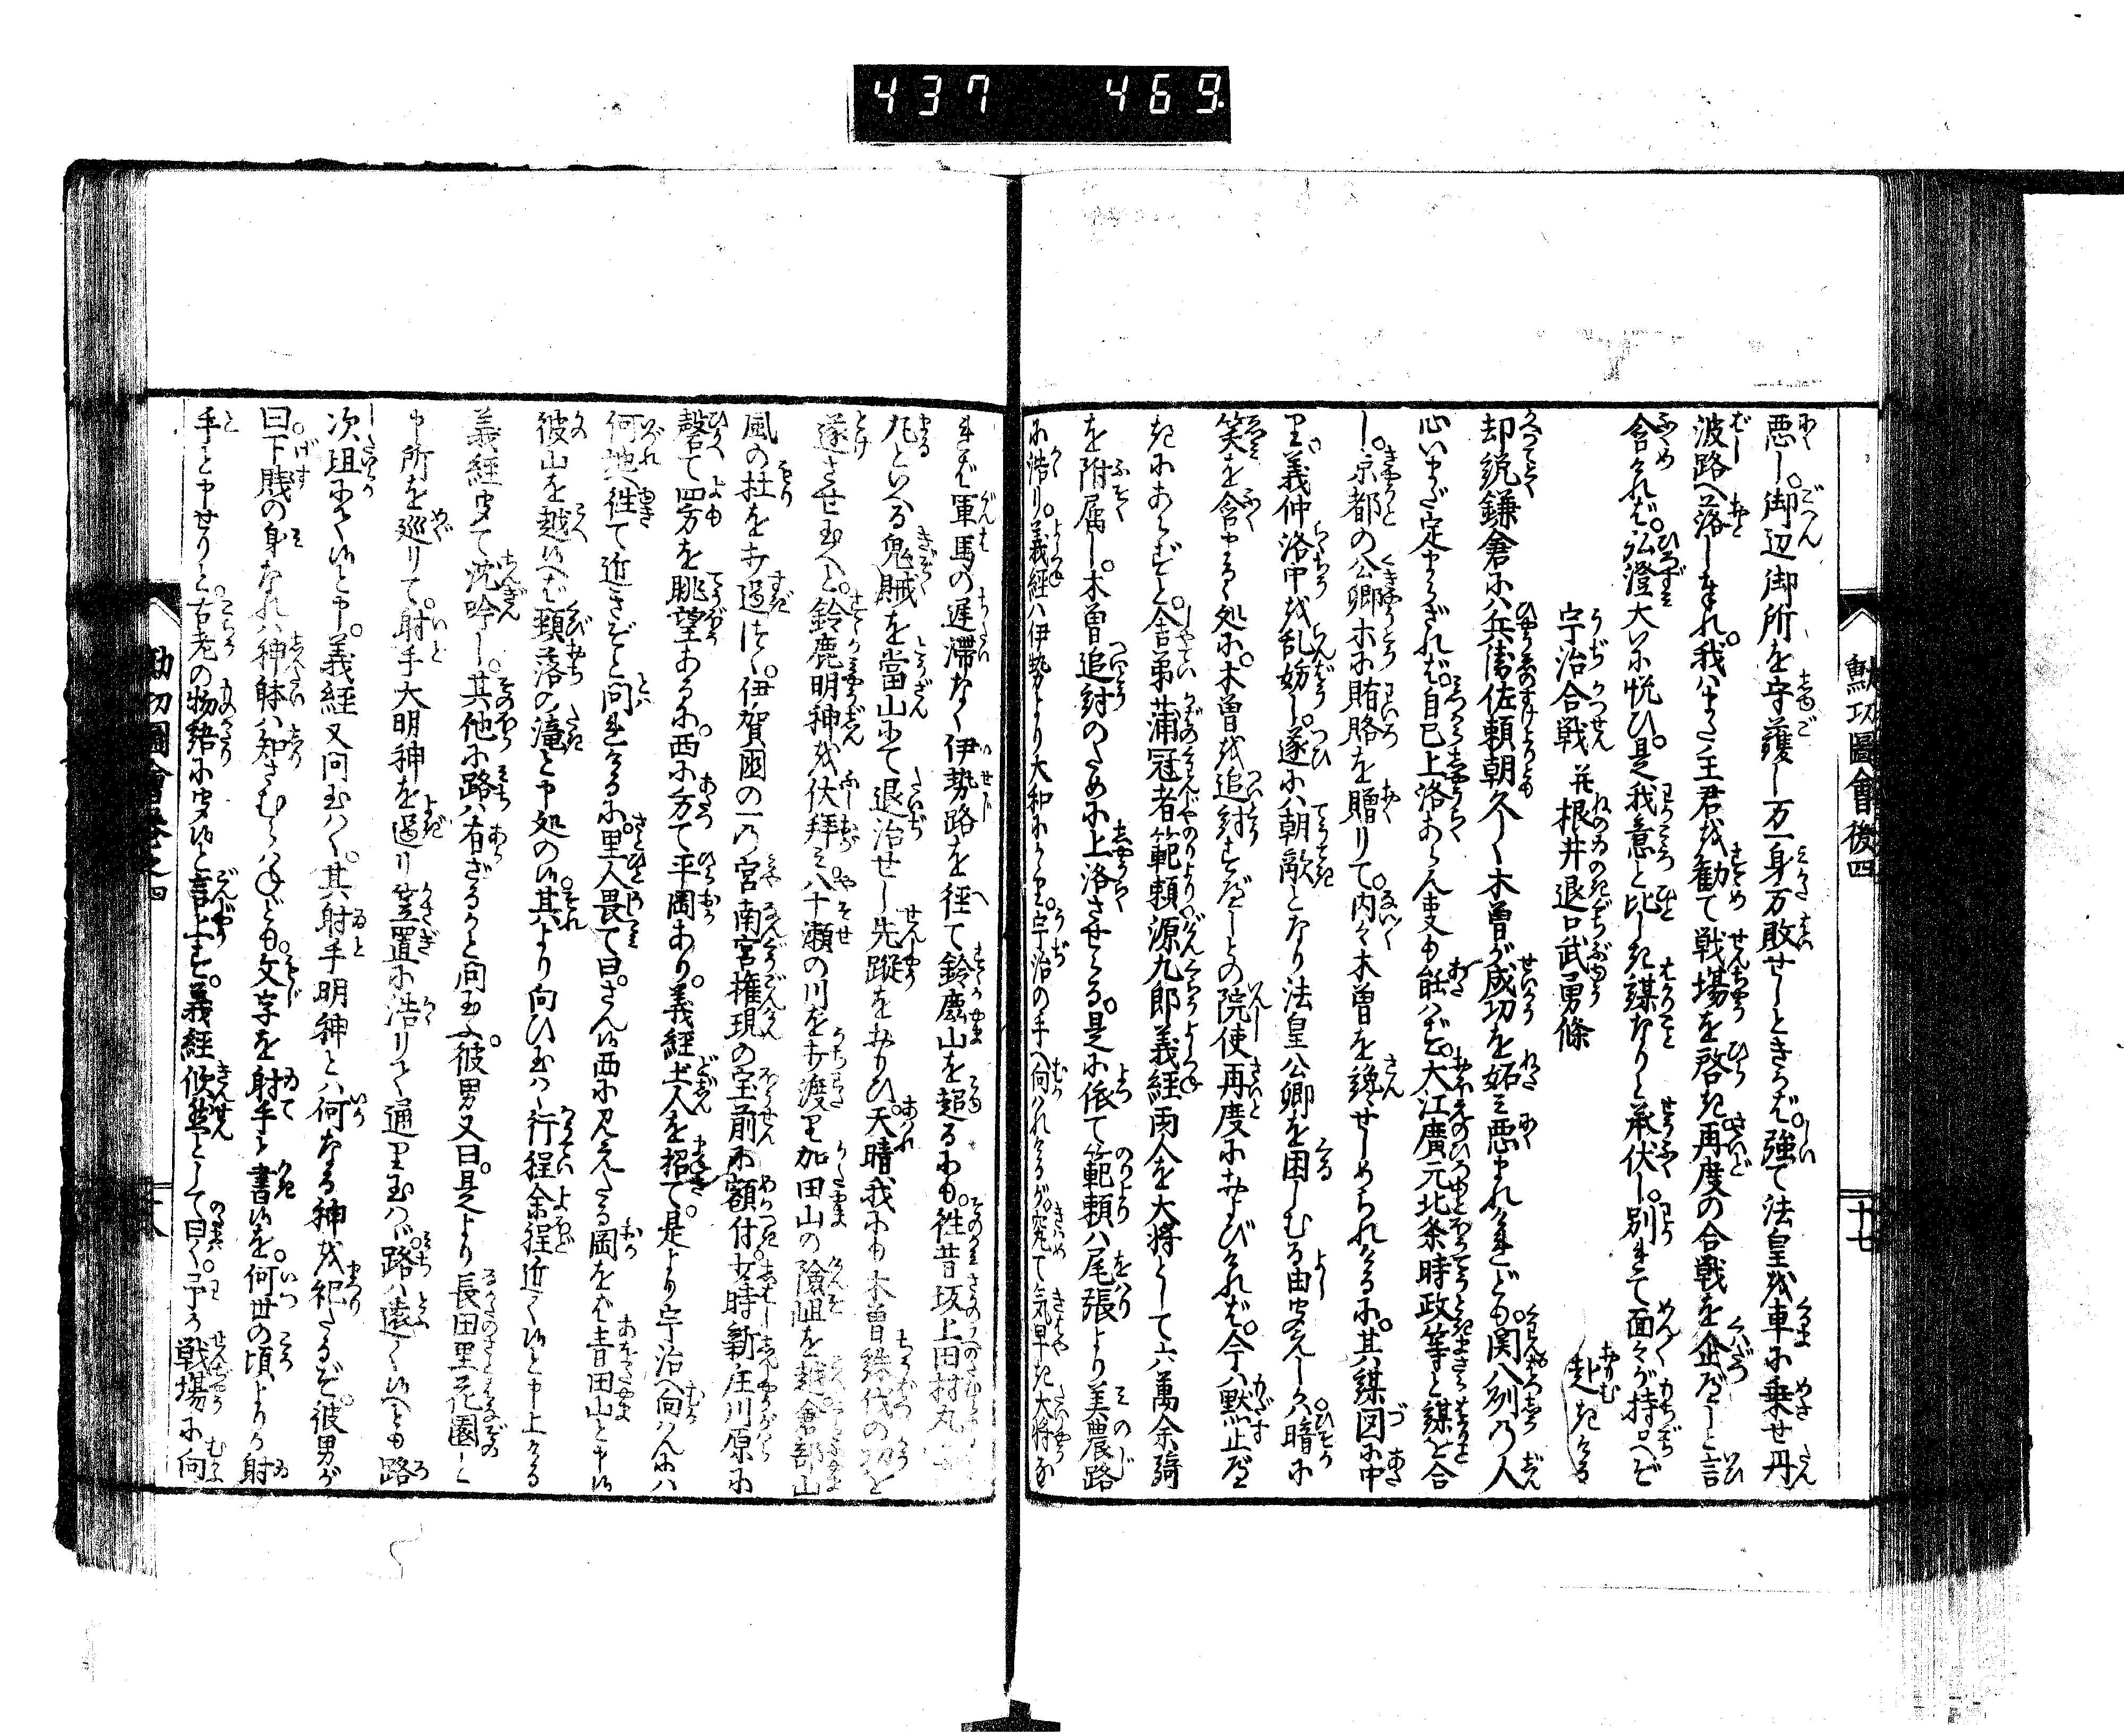 437 469.
勲功圖會後四
十七
悪し。御辺御所を守護し万一身方敗せしときらば。強て法皇を車に乗せ丹
波路へ落しまゐれ。我はまた主君を勧て戦場を啓き再度の合戦を企べしと言
含ければ。弘澄大いに悦び。是我意と比しき謀なりと承伏し。別れて面々が持口へぞ
赴きける
宇治合戦 并根井退口武勇條
却説鎌倉には兵衛佐頼朝久しく木曽が成功を妬み悪まれけれども。関八列の人
心いまだ定まらざれば。自己上洛あらん事も能はず。大江廣元北条時政等と謀を合
し。京都の公卿ホに賄賂を贈りて。内々木曽を讒せしめられけるに。其謀図に中
り。義仲洛中を乱妨し。遂に朝敵となり法皇公卿を困しむる由聞えしかば暗に
笑を含まるゝ処に。木曽を追討すべしとの院使再度におよびければ。今は黙止べ
きにあらずと。舎弟蒲冠者範頼源九郎義経両人を大将として六萬余騎
を附属し。木曽追討のために上洛させらる。是に依て範頼は尾張より美濃路
に浩り。義経は伊勢より大和にかゝり。宇治の手へ向はれけるが。究て気早き大将な
れば軍馬の遅滞なく伊勢路を径て鈴鹿山を超るにも。徃昔坂上田村丸
丸といへる鬼賊を當山にて退治せし先蹤をおもひ。天晴我にも木曽誅伐の功を
遂させ玉へと。鈴鹿明神を伏拝み。八十瀬の川を打渡り加田山の險岨を越。會部山
風の社を打過つゝ。伊賀国の一の宮南宮権現の宝前に額付。少時新庄川原に
磬て四方を眺望あるに。西に方て平岡あり。義経土人を招て。是より宇治へ向はんには
何地へ徃て近きぞと問れけるに。里人畏て曰。さん候西に見えたる岡をば青田山と申候
彼山を越候へば頸落の滝と申処の候。其より向ひ玉はゝ行程余程近く候と申上ける
義経聞て沈吟し。其他に路は有ざるかと問玉へば。彼男又曰。是より長田里花園と
申所を巡りて。射手大明神を過り笠置に浩りて通り玉はゞ。路は遠く候へども路
次坦にて候と申。義経又向玉はく。其射手明神とは何なる神を祀たるぞ。彼男が
曰。下賤の身なれば神躰は知さむらはねども。文字を射手と書候を。何世の頃よりか射
手と申せりと。古老の物語に聞候と言上す。義経欣然として曰く予が戦場に向
勲功圖會巻之四
十八